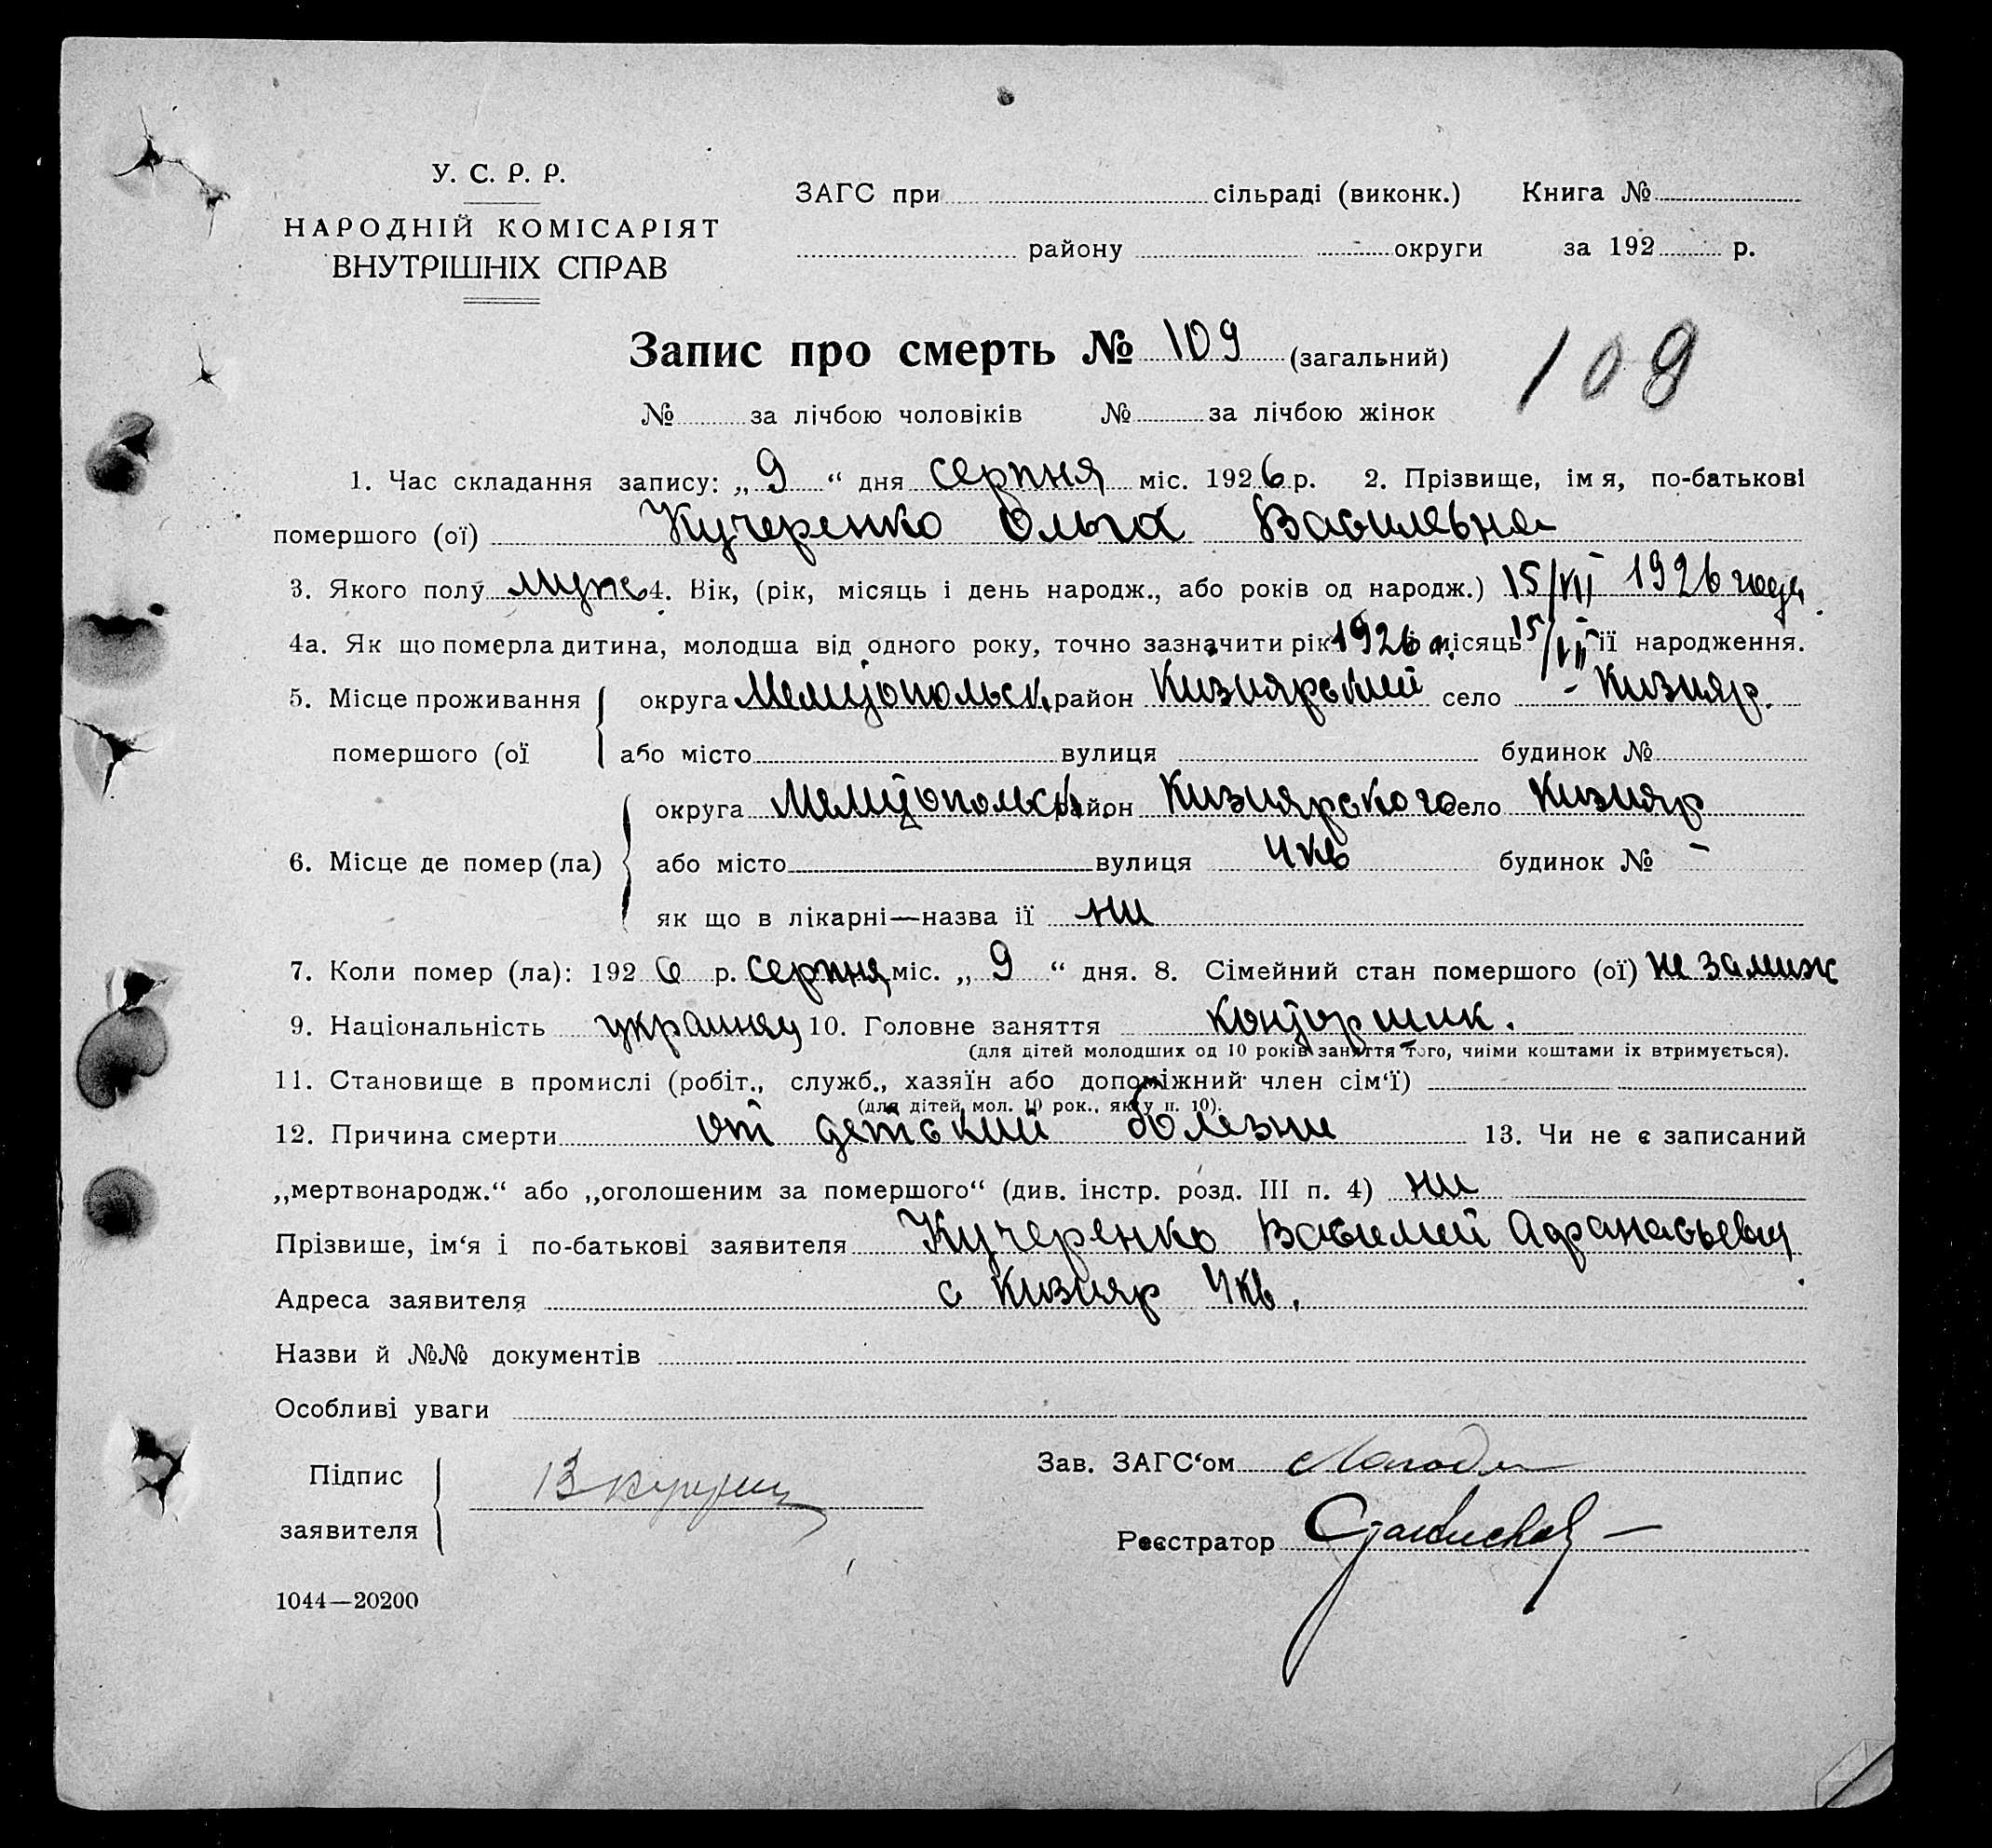 У. С. Р. Р.
НАРОДНІЙ КОМІСАРІЯТ
ВНУТРІШНІХ СПРАВ
ЗАГС при сільраді (виконк.) Книга №
району округи за 192 р.
Запис про смерть № 109 (загальний)
109
№ за лічбою чоловіків № за лічбою жінок
1. Час складання запису: „9“ дня серпня міс. 1926 р. 2. Прізвище, імя, по-батькові
помершого (ої) Кучеренко Ольга Васильевна
3. Якого полу муж 4. Вік, (рік, місяць і день народж., або років од народж.) 15/VII 1926 года
4а. Як що померла дитина, молодша від одного року, точно зазначити рік 1926 місяць 15/VII її народження.
5. Місце проживання округа Мелитопольск. район Кизиярский село - Кизияр.
помершого (ої або місто вулиця будинок №
округа Мелитопольск. район Кизиярского село Кизияр
6. Місце де помер (ла) або місто вулиця 4 кв будинок № -
як що в лікарні—назва її ни
7. Коли помер (ла): 1926 р. серпня міс. „9“ дня. 8. Сімейний стан помершого (ої) не замиж
9. Національність 10. Головне заняття конторщик.
(для дітей молодших од 10 років заняття того, чиїми коштами їх втримується).
11. Становище в промислі (робіт., служб., хазяїн або допоміжний член сім‘ї)
(для дітей мол. 10 рок., як у п. 10).
12. Причина смерти от детский болезни 13. Чи не є записаний
„мертвонародж.“ або „оголошеним за помершого“ (див. інстр. розд. III п. 4) ни
Прізвище, ім‘я і по-батькові заявителя Кучеренко Василий Афанасьевич
Адреса заявителя с Кизияр 4 кв.
Назви й №№ документів
Особливі уваги
Підпис
заявителя
Зав. ЗАГС‘ом
Реєстратор
1044—20200